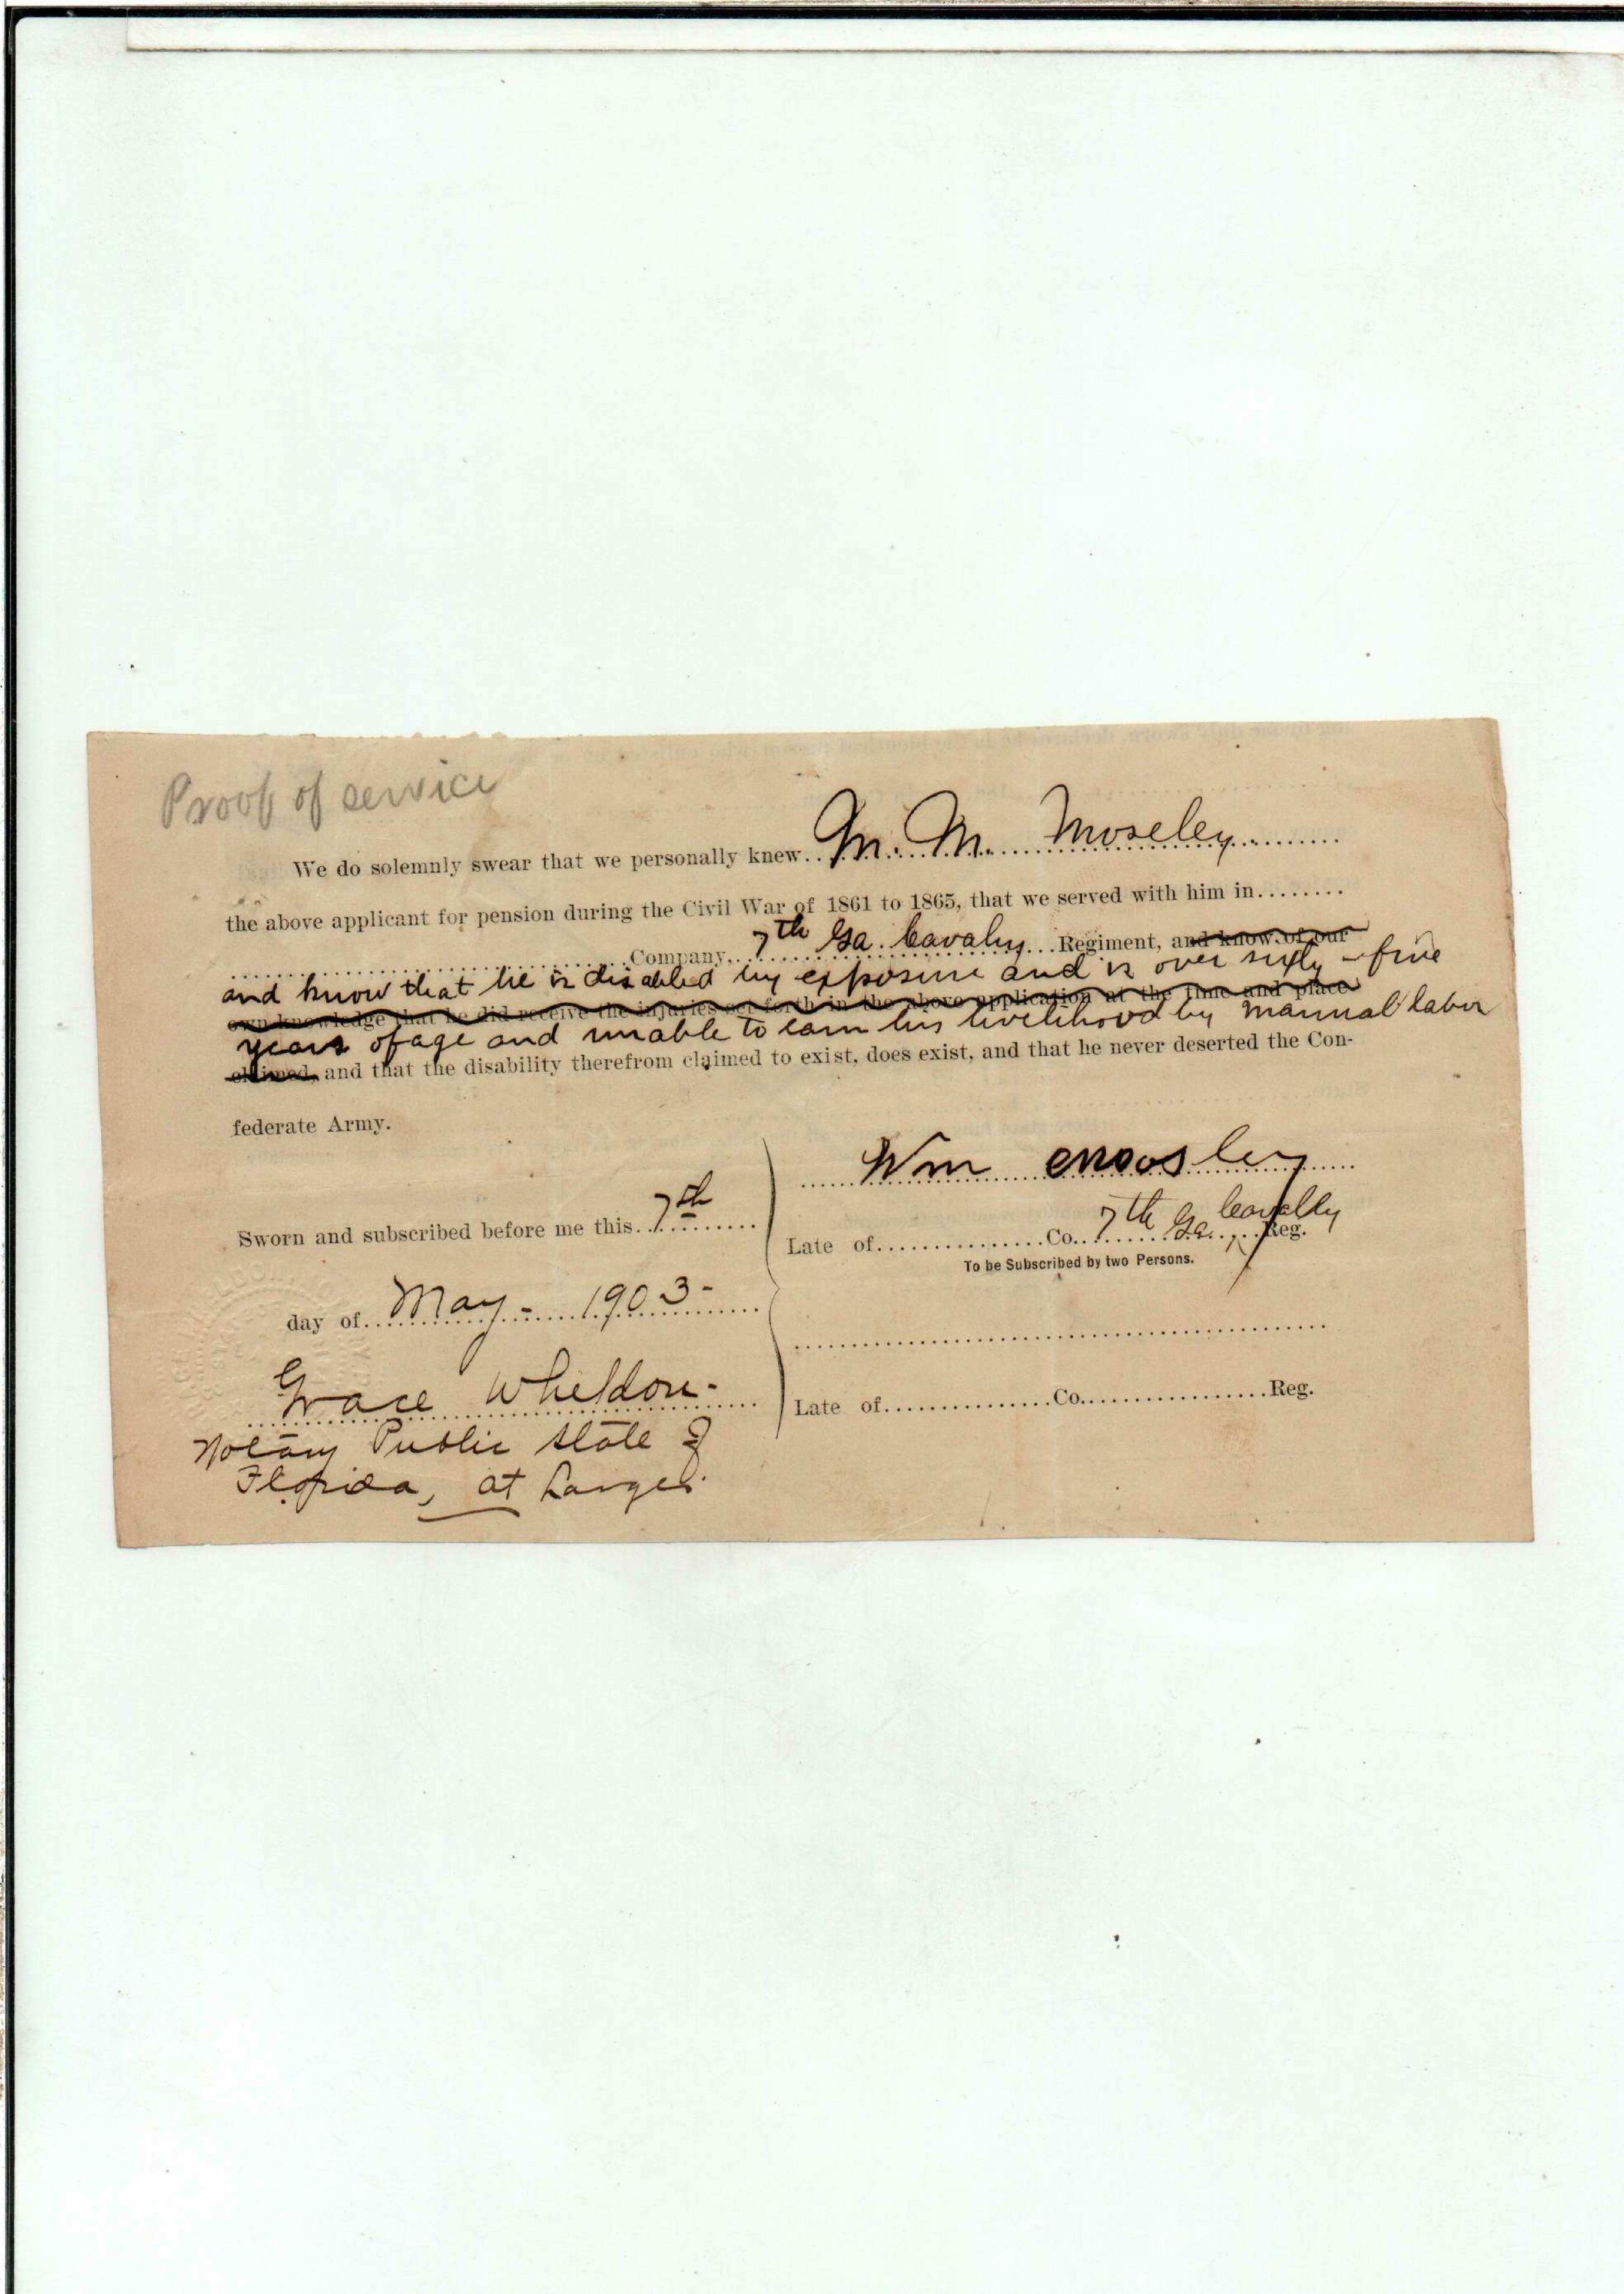 Proof of service
We do solemnly swear that we personally knew M. M. Moseley
the above applicant for pension during the Civil War of 1861 to 1865, that we served with him in
Company, 7th Ga. Cavalry Regiment, and know of our
and know that he is disabled by exposure and is over sixty-five
own knowledge that he did receive the injuries set forth in the above application at the time and place
years of age and unable to earn his livelihood by manual labor
claimed, and that the disability therefrom claimed to exist, does exist, and that he never deserted the Con-
federate Army.
Wm Moosley
Sworn and subscribed before me this 7th
Late of Co. 7th Ga. Cavalry Reg.
To be Subscribed by two Persons.
day of May - 1903 -
Grace Wheldon -
Late of Co. Reg.
Notary Public State of
Florida, at Large.